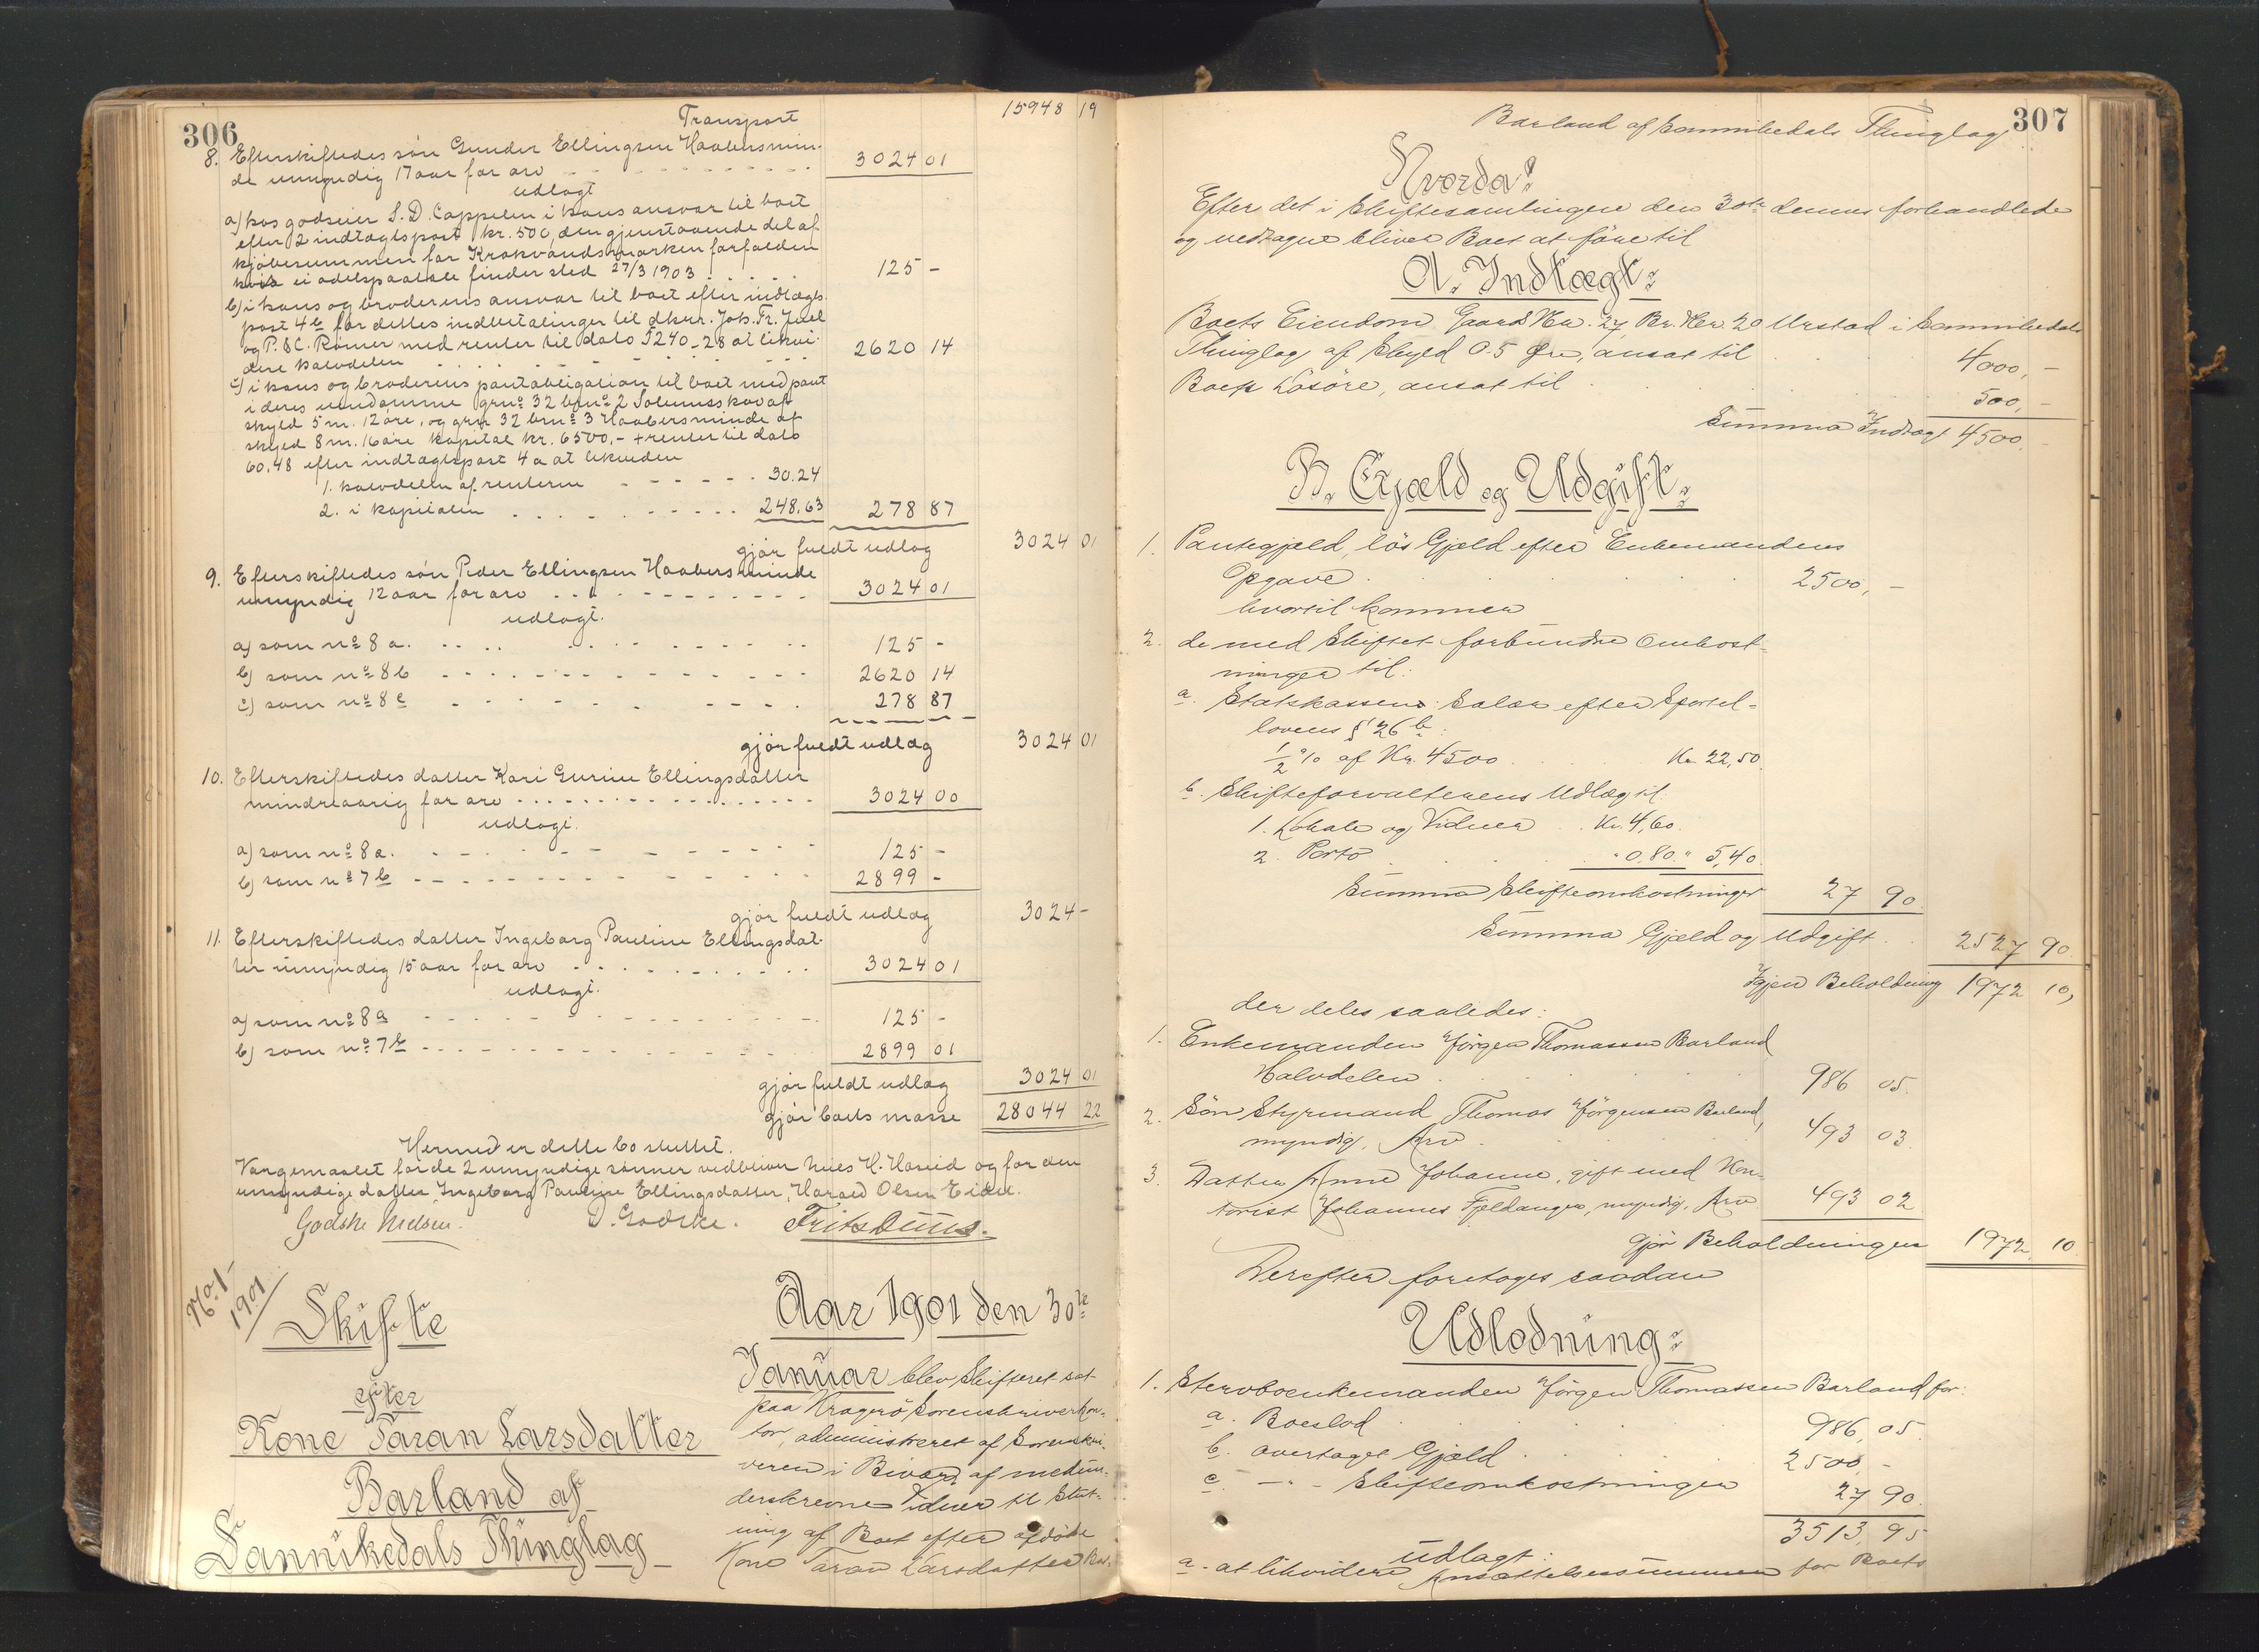 306
Transport 15948 19
8. Efterskiftedes søn Gunder Ellingsen Haabersmin-
de umyndig 17 aar for arv 3024 01
udlagt
a) hos godseier S. D. Cappelen i hans ansvar til boet
efter 2 indtægtspost kr. 500, den gjenstaaende del af
kjøbesummen for Krokvandsmarken forfalden
hvis ei odelspaatale finder sted 27/3 1903 125 -
b) i hans og broderens ansvar til boet efter indtægts-
post 4 b for dettes indbetalinger til dhrr. Joh. Fr. Juel
og P. & C. Rømer med renter til dato 5240-28 at likvi-
dere halvdelen 2620 14
c) i hans og broderens pantobligation til boet med pant
i deres eiendomme grno 32 brno 2 Solemsskov af
skyld 5 m. 12 øre, og grn 32 brno 3 Haabersminde af
skyld 8 m. 16 øre kapital kr. 6500,- + renter til dato
60.48 efter indtægtspost 4 a at likvidere
1. halvdelen af renterne 30.24
2. i kapitalen 248.63 278 87
gjør fuldt udlæg 3024 01
9. Efterskiftedes søn Peder Ellingsen Haabersminde
umyndig 12 aar for arv 3024 01
udlagt.
a) som no 8 a. 125 -
b) som no 8 b 2620 14
c) som no 8 c 278 87
gjør fuldt udlæg 3024 01
10. Efterskiftedes datter Kari Gurine Ellingsdatter
mindreaarig for arv 3024 00
udlagt.
a) som no 8 a. 125 -
b) som no 7 b 2899 -
gjør fuldt udlæg 3024 -
11. Efterskiftedes datter Ingeborg Pauline Ellingsdat-
ter umyndig 15 aar for arv 3024 01
udlagt.
a) som no 8 a 125 -
b) som no 7 b 2899 01
gjør fuldt udlæg 3024 01
gjør boets masse 28044 22
Hermed er dette bo sluttet.
Værgemaalet for de 2 umyndige sønner vedbliver H. Haseid og for den
umyndige datter Ingeborg Pauline Ellingsdatter, Harald Olsen Eidet.
Godske Nielsen. D. Godske. Frits Duus.
No 1-
1901
Skifte
efter
Kone Taran Larsdatter
Barland af
Sannikedals Thinglag
Aar 1901 den 30te
Januar blev Skifteret sat
paa Kragerø Sorenskriverkon-
tor, administreret af Sorenskri-
veren i Bivær af medun-
derskrevne Vidner til Slut-
ning af Boet efter afdøde
Kone Taran Larsdatter Bar-
307
Barland af Sannikedals Thinglag
Hvorda:
Efter det i Skiftesamlingen den 30te dennes forhandlede
og vedtagne bliver Boet at føre til
A. Indtægt:
Boets Eiendom Gaards No. 27, Br. No. 20 Urstad i Sannikedals
Thinglag af Skyld 0.5 Øre, ansat til 4000, -
Boets Løsøre, ansat til 500, -
Summa Indtægt 4500
B. Gjæld og Udgift:
1. Pantegjæld, løs Gjæld efter Enkemandens
Opgave 2500, -
hvortil kommer
2. de med Skiftet forbundne Omkost-
ninger til:
a. Statskassen: Salær efter Sportel-
lovens § 26 b:
1/2 % af Kr. 4500 Kr. 22,50
b. Skifteforvalterens Udlæg til
1. Lokale og Vidner Kr. 4,60
2. Porto " 0,80 " 5,40
Summa Skifteomkostninger 27 90
Summa Gjæld og Udgift 2527 90
Igjen Beholdning 1972 10,
der deles saaledes:
1. Enkemanden Jørgen Thomassen Barland
Halvdelen 986 05
2. Søn Styrmand Thomas Jørgensen Barland,
myndig, Arv 493 03
3. Datter Anne Johanne, gift med Kon-
torist Johannes Fjeldanger, myndig, Arv 493 02
gjør Beholdningen 1972 10
Derefter foretoges saadan
Udlodning:
1. Stervboenkemanden Jørgen Thomassen Barland for:
a. Boeslod 986, 05
b. overtaget Gjæld 2500, -
c. - " - Skifteomkostninger 27 90
3513, 95
udlagt:
a. at likvidere Ansættelsessummen for Boets